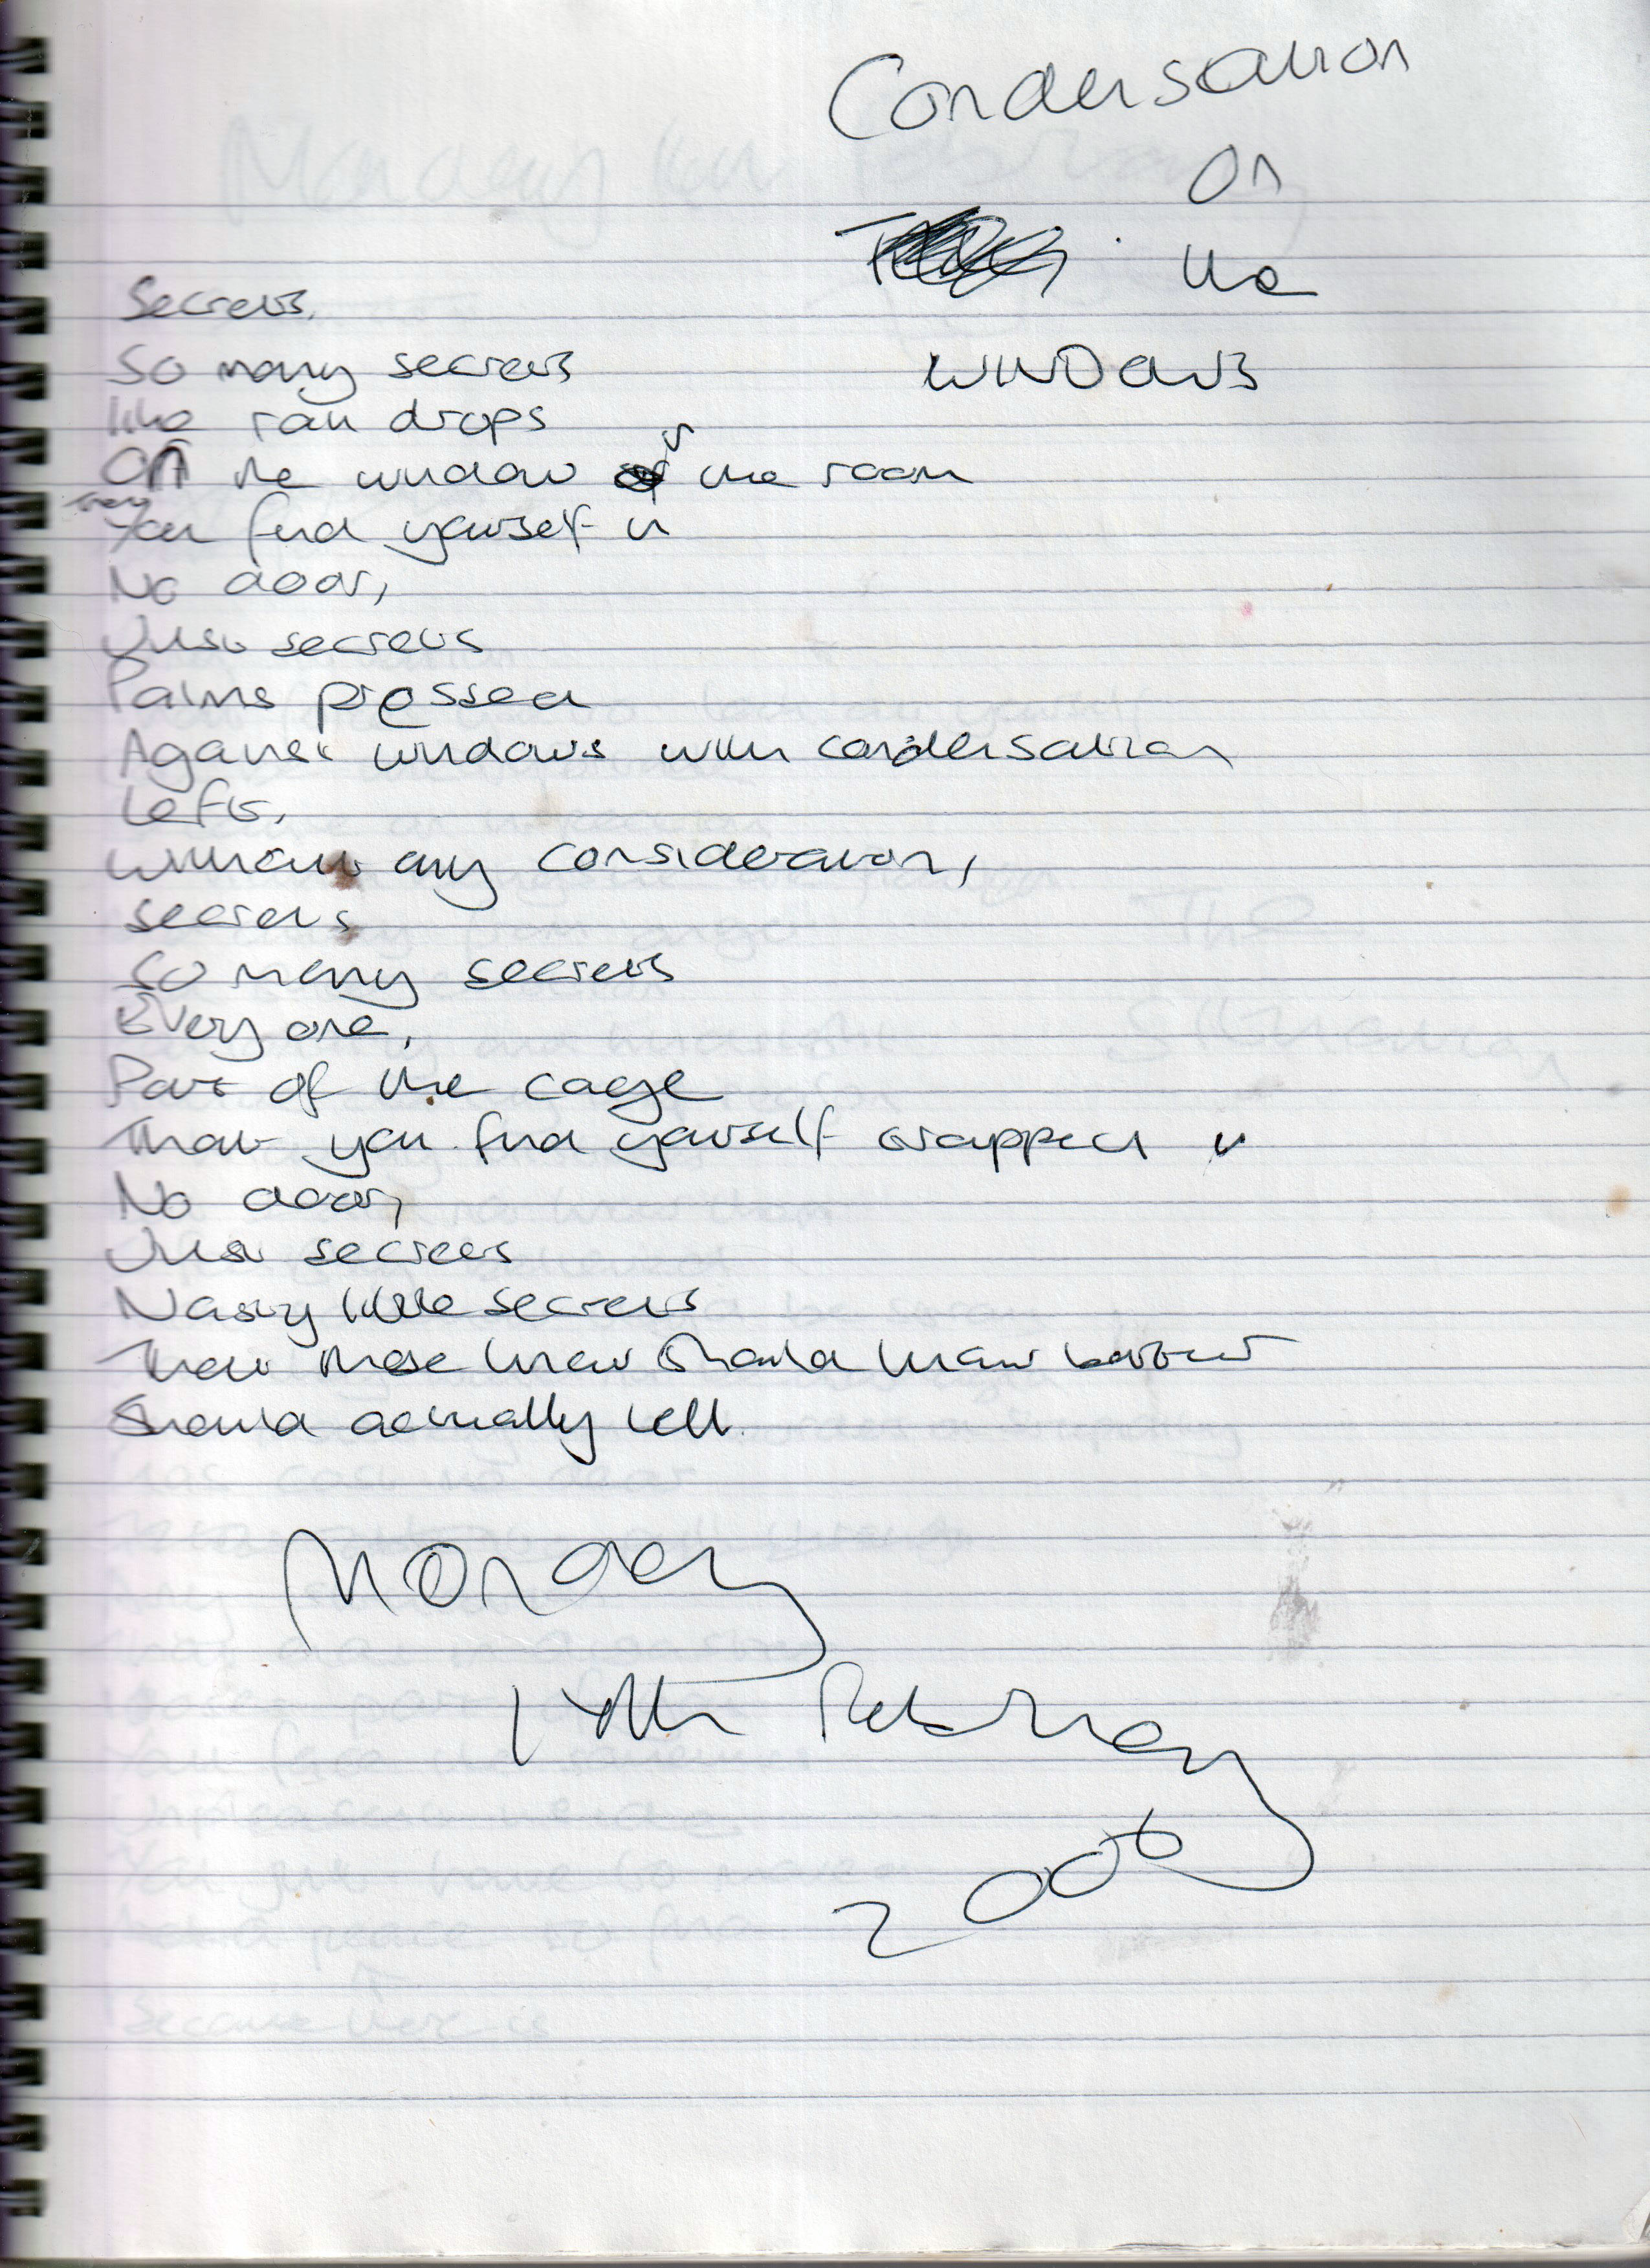 Condensation
On
the
WINDOWS
Secrets,
So many secrets
like rain drops
On the window of the room
that
You find yourself in
No door,
Just secrets
Palms pressed
Against windows with condensation
Left,
without any consideration,
secrets
So many secrets
Every one,
Part of the cage
That you find yourself wrapped in
No door,
Just secrets
Nasty little secrets
That those know should know better
Should actually tell.
Monday
February
2006